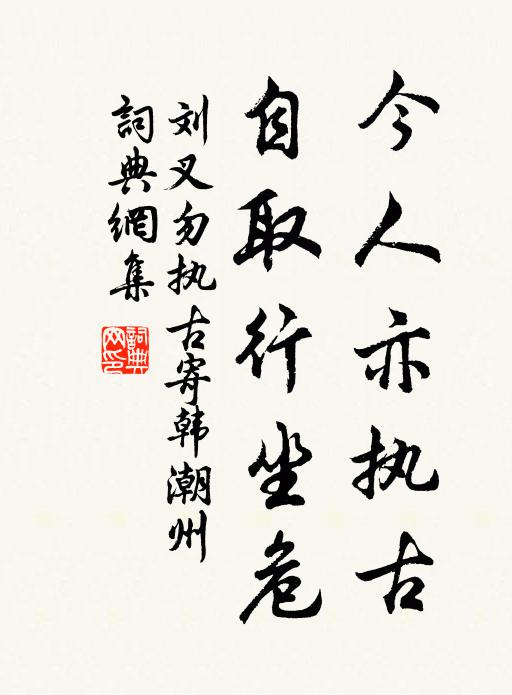 今人亦执古
自取行坐危
刘叉勿执古寄韩潮州
詞典網集
詞典網印